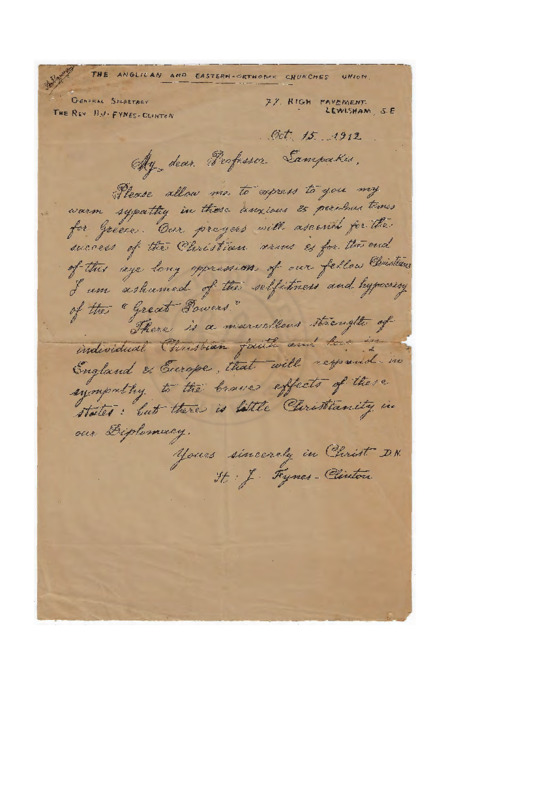 THE ANGLICAN AND EASTERN-ORTHODOX CHURCHES UNION
GENERAL SECRETARY
THE REV H.J. FYNES-CLINTON
HIGH PAVEMENT.
LEWISHAM S.E
Oct. 15. 1912
My dear Professor Lampakis,
Please allow me to express to you my
warm sypathy in these anxious & perilous times
for Greece. Our prayers with ascend for the
success of the Christian arms & for the end
of this age long oppression of our fellow Christians
I am ashamed of the selfishness and hypocrisy
of the "Great Powers"
There is a marvellous strength of
individual Christian faith and in
England & Europe, that will respond in
sympathy to the brave effects of these
states: but there is little Christianity in
our Diplomacy.
Yours sincerely in Christ D.N.
H. J. Fynes-Clinton